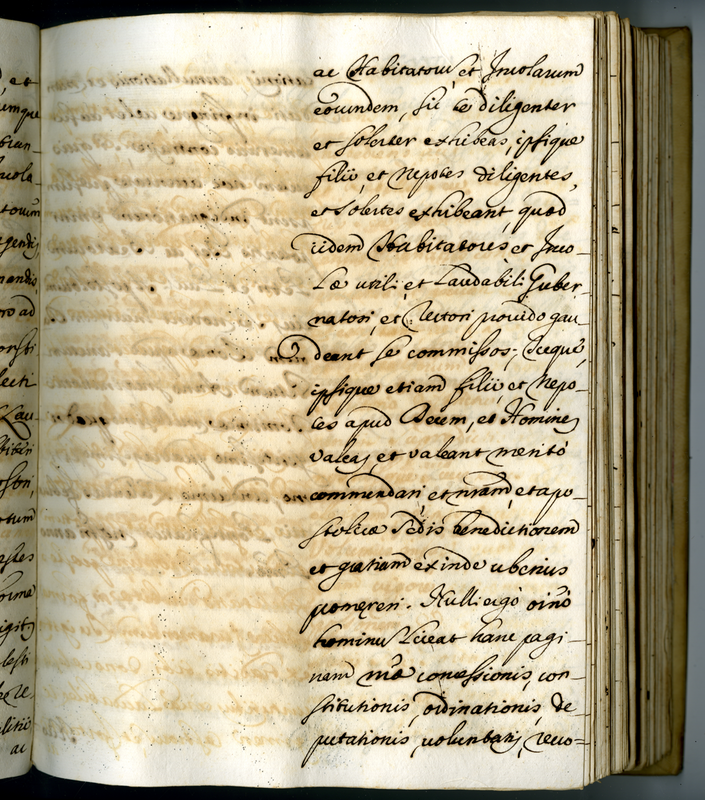 , et
umque
ac Habitatorū et Incolarum
eorumdem, sic te diligenter
et solerter exhibeas, ipsique
filii, et Nepotes diligentes,
et solertes exhibeant, quod
iidem Habitatores et Inco-
læ utili, et Laudabili Guber-
natori, et Rectori provido gau-
deant se commissos; Tuque,
ipsique etiam filii, et Nepo-
tes apud Deum, et Homines
valeas, et valeant meritò
commendari, et nrām, et apo-
stolicæ Sedis benedictionem
et gratiam exinde uberius
promereri. Nulli ergò oīno
hominu Liceat hanc pagi-
nam nr̄æ concessionis, con-
stitutionis, ordinationis, de-
putationis, voluntatis, revo-
ac